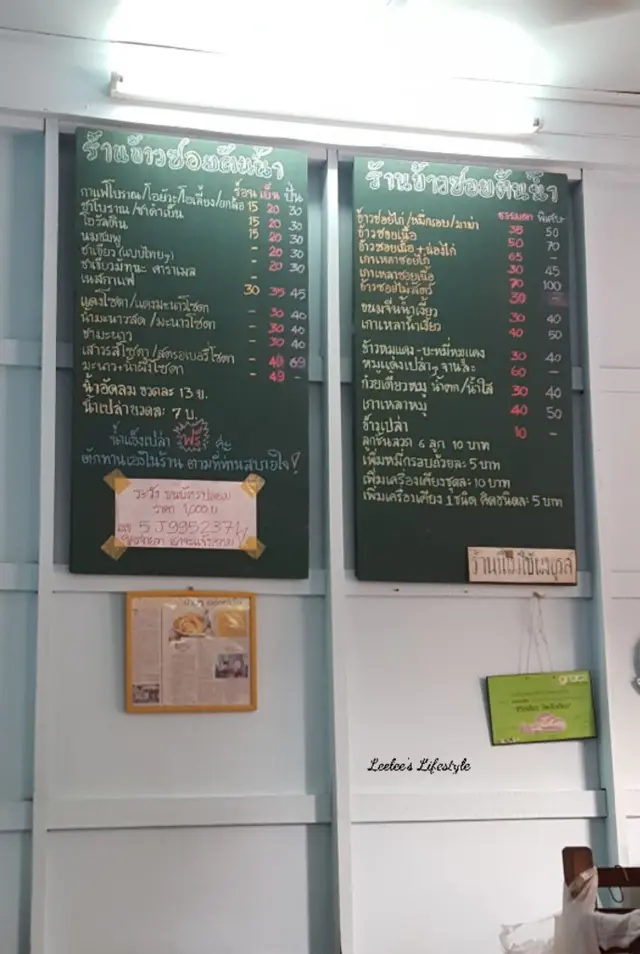 ร้านข้าวซอยต้นน้ำ
ร้อน เย็น ปั่น
กาแฟโบราณ/โอยัวะ/โอเลี้ยง/ยกล้อ 15 20 30
ชาโบราณ/ชาดำเย็น 15 20 30
โอวัลติน 15 20 30
นมชมพู - 20 30
ชาเขียว (แบบไทยๆ) - 20 30
ชาเขียวมัทฉะ คาราเมล
เนสกาแฟ 30 35 45
แดงโซดา/แดงมะนาวโซดา - 30 40
น้ำมะนาวสด/มะนาวโซดา - 30 40
ชามะนาว - 30 40
เสาวรสโซดา/สตรอเบอรี่โซดา - 49 69
มะนาว+น้ำผึ้งโซดา - 49 -
น้ำอัดลม ขวดละ 13 บ.
น้ำเปล่าขวดละ 7 บ.
น้ำแข็งเปล่า ฟรี
ตักทานเองในร้าน ตามที่ท่านสบายใจ!
ระวัง ธนบัตรปลอม
ราคา 1,000 บ
เลข 5J9952371
ร้านข้าวซอยต้นน้ำ
ธรรมดา พิเศษ
ข้าวซอยไก่/หมี่กรอบ/มาม่า 38 50
ข้าวซอยเนื้อ 50 70
ข้าวซอยเนื้อ+น่องไก่ 65 -
เกาเหลาซอยไก่ 30 45
เกาเหลาซอยเนื้อ 70 100
ข้าวซอยไม่ใส่สัตว์ 30 -
ขนมจีนน้ำเงี้ยว 30 40
เกาเหลาน้ำเงี้ยว 40 50
ข้าวหมูแดง-บะหมี่หมูแดง 30 40
หมูแดงเปล่าๆ จานละ 60 -
ก๋วยเตี๋ยวหมู น้ำตก/น้ำใส 30 40
เกาเหลาหมู 40 50
ข้าวเปล่า 10 -
ลูกชิ้นลวก 6 ลูก 10 บาท
เพิ่มหมี่กรอบถ้วยละ 5 บาท
เพิ่มเครื่องเคียงชุดละ 10 บาท
เพิ่มเครื่องเคียง 1 ชนิด คิดชนิดละ 5 บาท
ร้านนี้ไม่ใช้ผงชูรส
Leelee's Lifestyle